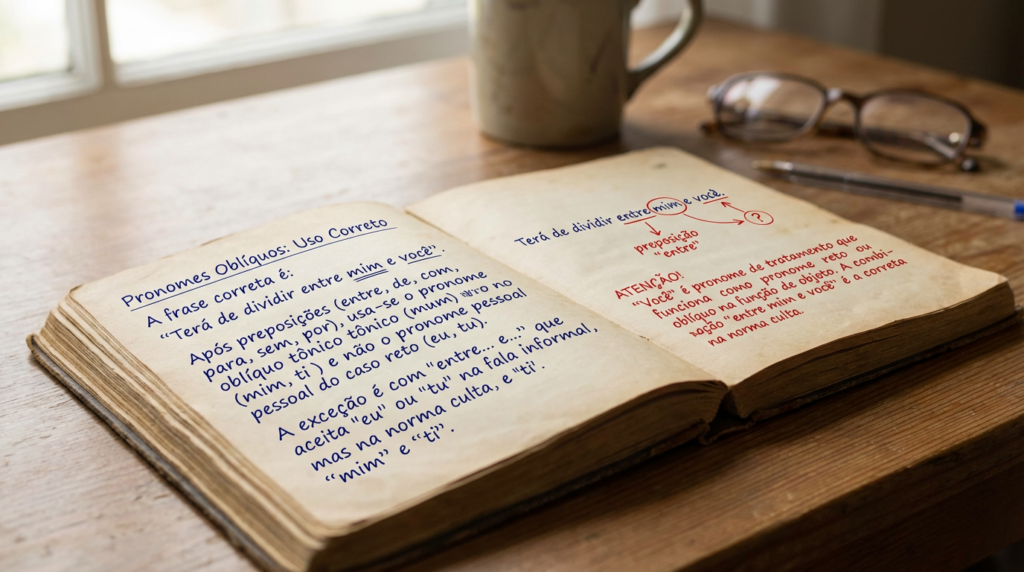 Pronomes Oblíquos: Uso Correto
A frase correta é:
"Terá de dividir entre mim e você".
Após preposições (entre, de, com,
para, sem, por), usa-se o pronome
oblíquo tônico tônico (mum) יזro no
(mim, ti ) e não o pronome pessoal
pessoal do caso reto (eu, tu).
A exceção é com "entre... e..." que
aceita "eu" ou "tu" na fala informal,
mas na norma culta, e "ti'.
"mim" e "ti".
Terá de dividir entre mim e você.
?
preposição
"entre"
ATENÇÃO!
"Você" é pronome de tratamento que
funciona como pronome reto ou
oblíquo na função de objeto. A combi-
zação "entre mim e você" é a correta
na norma culta.